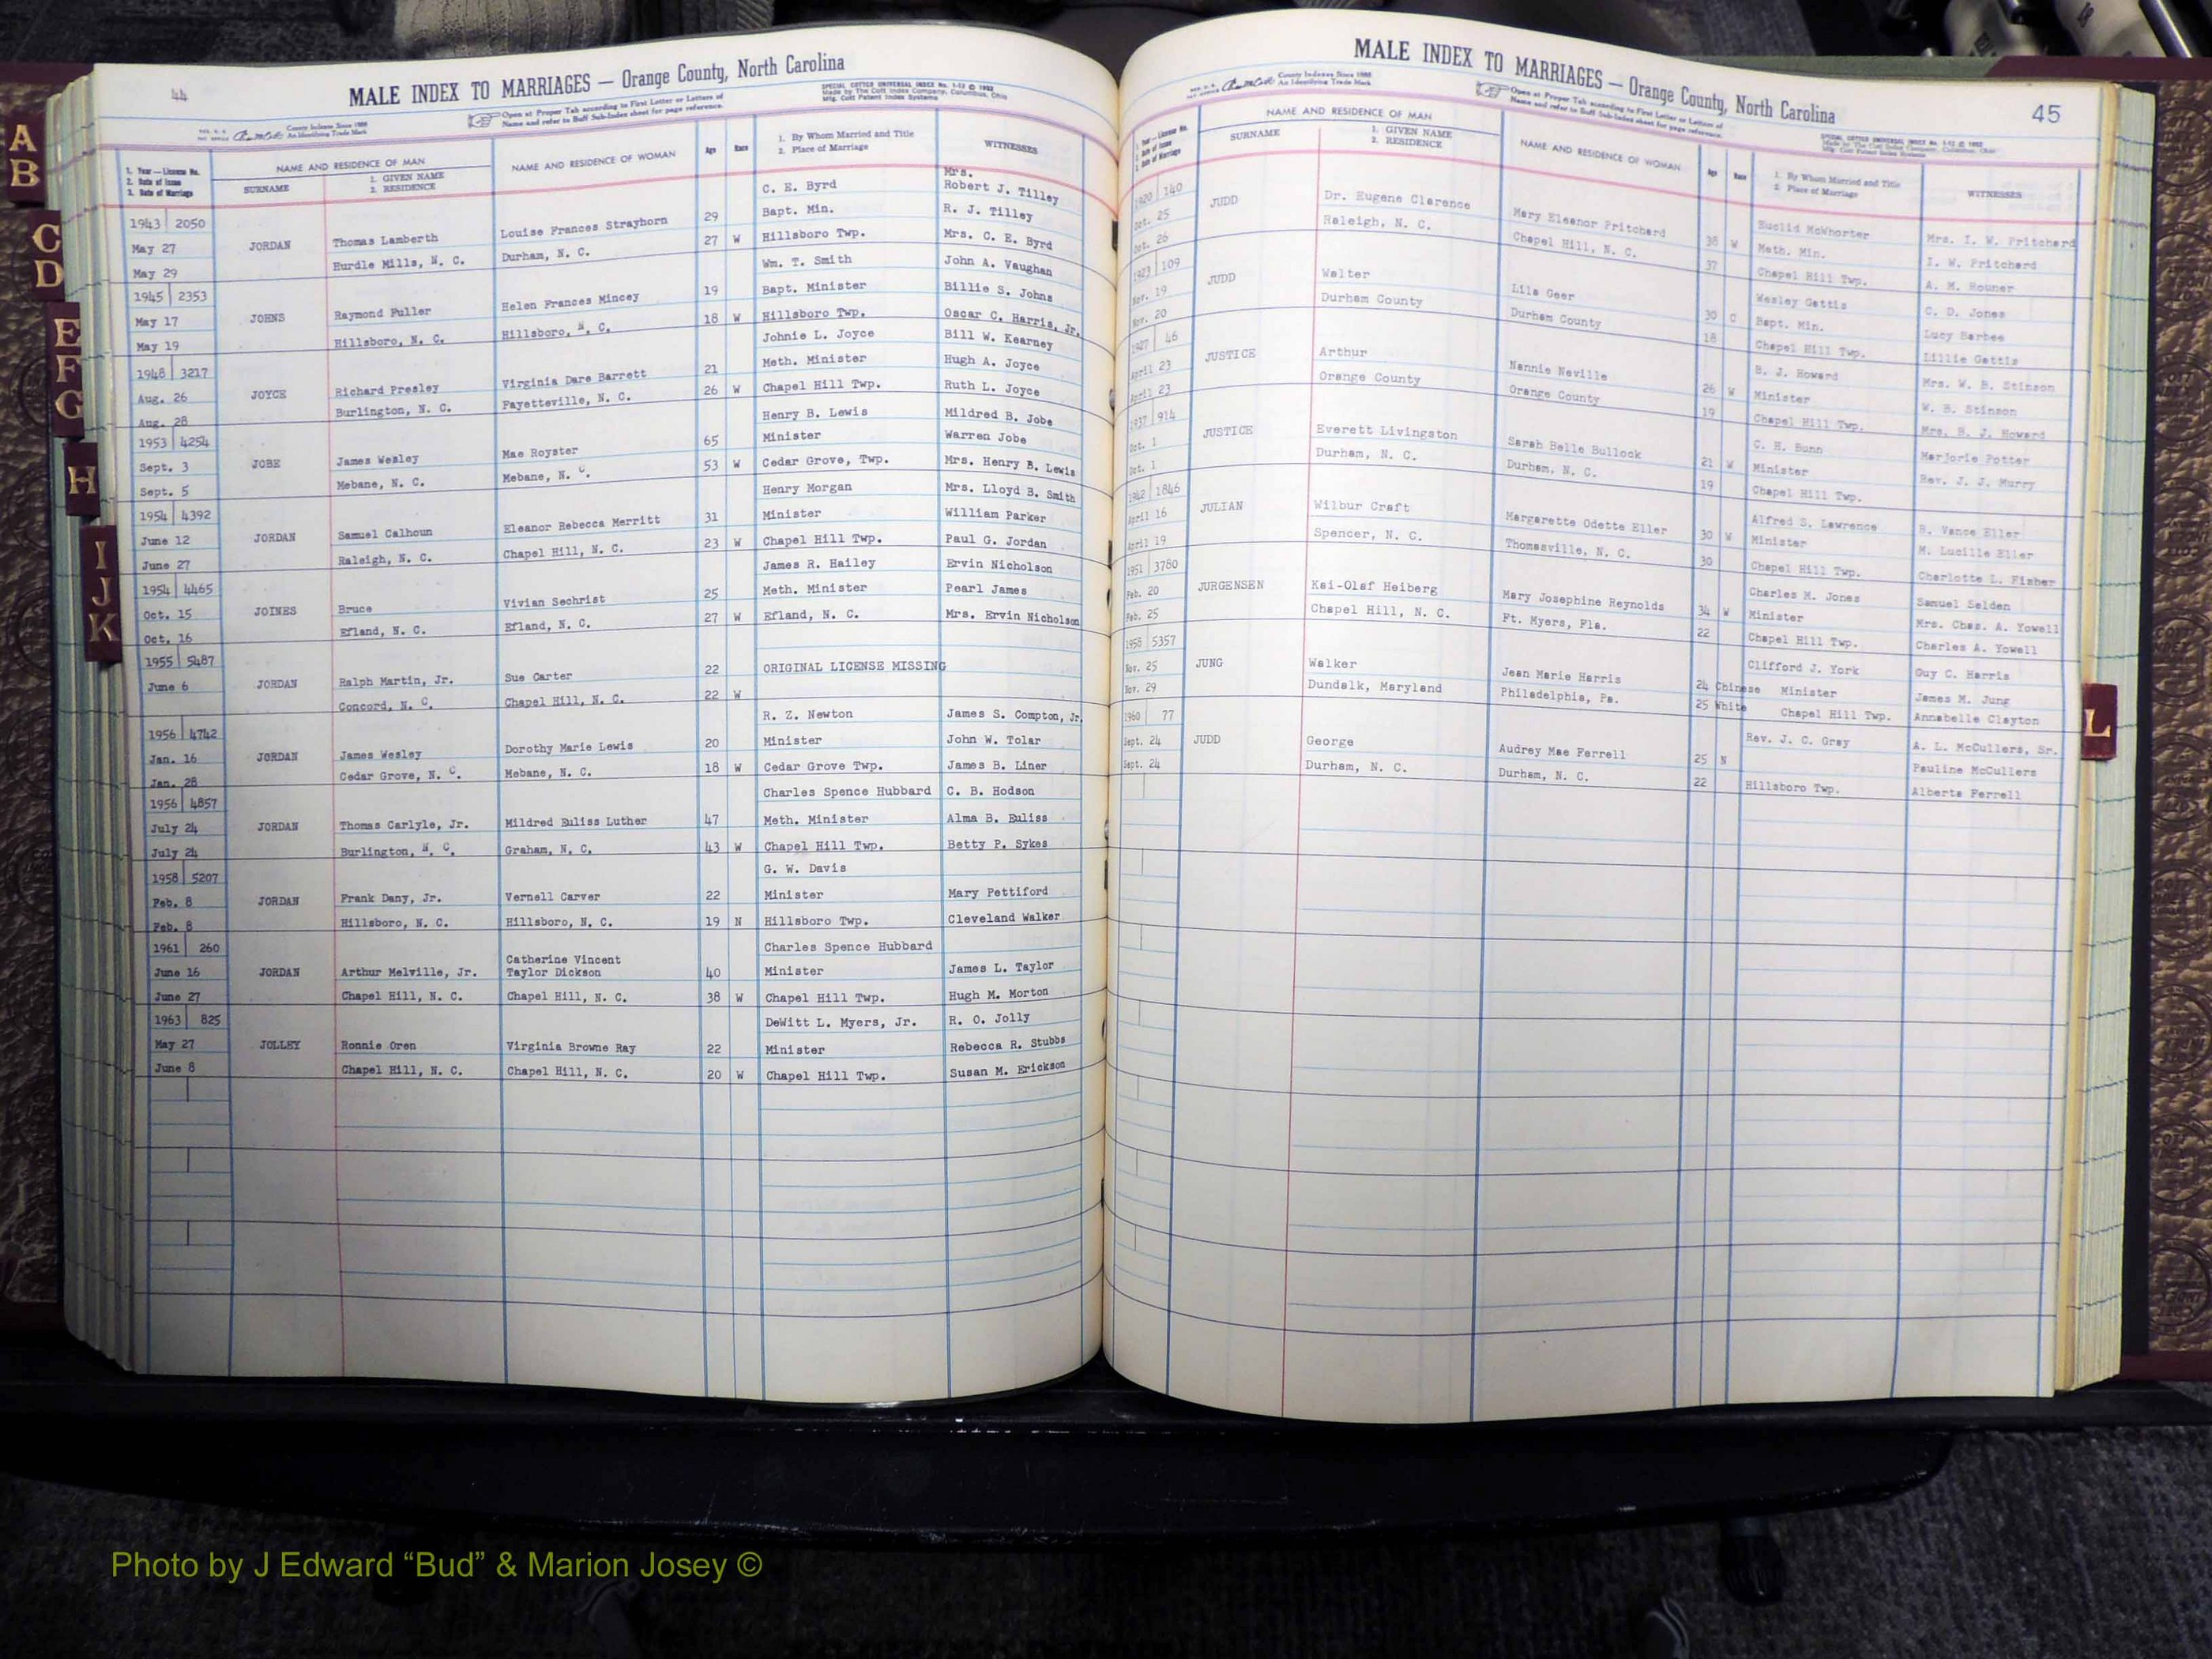 A
B
C
D
E
F
G
H
I
J
K
L
44
MALE INDEX TO MARRIAGES — Orange County, North Carolina
County Indexes Since 1888
An Identifying Trade Mark
Open at Proper Tab according to First Letter or Letters of
Name and refer to Buff Sub-Index sheet for page reference.
SPECIAL COTTCO UNIVERSAL INDEX No. 1-12 © 1952
Made by The Cott Index Company, Columbus, Ohio
Mfg. Cott Patent Index Systems
1. Year — License No.
2. Date of Issue
3. Date of Marriage
NAME AND RESIDENCE OF MAN
SURNAME
1. GIVEN NAME
2. RESIDENCE
NAME AND RESIDENCE OF WOMAN
Age
Race
1. By Whom Married and Title
2. Place of Marriage
WITNESSES
1943 2050 C. E. Byrd Mrs. Robert J. Tilley
May 27 JORDAN Thomas Lamberth Louise Frances Strayhorn 29 Bapt. Min. R. J. Tilley
May 29 Hurdle Mills, N. C. Durham, N. C. 27 W Hillsboro Twp. Mrs. C. E. Byrd
1945 2353 Wm. T. Smith John A. Vaughan
May 17 JOHNS Raymond Fuller Helen Frances Mincey 19 Bapt. Minister Billie S. Johns
May 19 Hillsboro, N. C. Hillsboro, N. C. 18 W Hillsboro Twp. Oscar C. Harris, Jr.
1948 3217 Johnie L. Joyce Bill W. Kearney
Aug. 26 JOYCE Richard Presley Virginia Dare Barrett 21 Meth. Minister Hugh A. Joyce
Aug. 28 Burlington, N. C. Fayetteville, N. C. 26 W Chapel Hill Twp. Ruth L. Joyce
1953 4254 Henry B. Lewis Mildred B. Jobe
Sept. 3 JOBE James Wesley Mae Royster 65 Minister Warren Jobe
Sept. 5 Mebane, N. C. Mebane, N. C. 53 W Cedar Grove, Twp. Mrs. Henry B. Lewis
1954 4392 Henry Morgan Mrs. Lloyd B. Smith
June 12 JORDAN Samuel Calhoun Eleanor Rebecca Merritt 31 Minister William Parker
June 27 Raleigh, N. C. Chapel Hill, N. C. 23 W Chapel Hill Twp. Paul G. Jordan
1954 4465 James R. Hailey Ervin Nicholson
Oct. 15 JOINES Bruce Vivian Sechrist 25 Meth. Minister Pearl James
Oct. 16 Efland, N. C. Efland, N. C. 27 W Efland, N. C. Mrs. Ervin Nicholson
1955 5487
June 6 JORDAN Ralph Martin, Jr. Sue Carter 22 ORIGINAL LICENSE MISSING
Concord, N. C. Chapel Hill, N. C. 22 W
1956 4742 R. Z. Newton James S. Compton, Jr.
Jan. 16 JORDAN James Wesley Dorothy Marie Lewis 20 Minister John W. Tolar
Jan. 28 Cedar Grove, N. C. Mebane, N. C. 18 W Cedar Grove Twp. James B. Liner
1956 4857 Charles Spence Hubbard C. B. Hodson
July 24 JORDAN Thomas Carlyle, Jr. Mildred Euliss Luther 47 Meth. Minister Alma B. Euliss
July 24 Burlington, N. C. Graham, N. C. 43 W Chapel Hill Twp. Betty P. Sykes
1958 5207 G. W. Davis
Feb. 8 JORDAN Frank Dany, Jr. Vernell Carver 22 Minister Mary Pettiford
Feb. 8 Hillsboro, N. C. Hillsboro, N. C. 19 N Hillsboro Twp. Cleveland Walker
1961 260 Catherine Vincent Charles Spence Hubbard
June 16 JORDAN Arthur Melville, Jr. Taylor Dickson 40 Minister James L. Taylor
June 27 Chapel Hill, N. C. Chapel Hill, N. C. 38 W Chapel Hill Twp. Hugh M. Morton
1963 825 DeWitt L. Myers, Jr. R. O. Jolly
May 27 JOLLEY Ronnie Oren Virginia Browne Ray 22 Minister Rebecca R. Stubbs
June 8 Chapel Hill, N. C. Chapel Hill, N. C. 20 W Chapel Hill Twp. Susan M. Erickson
45
MALE INDEX TO MARRIAGES — Orange County, North Carolina
County Indexes Since 1888
An Identifying Trade Mark
Open at Proper Tab according to First Letter or Letters of
Name and refer to Buff Sub-Index sheet for page reference.
Year — License No.
Date of Issue
Date of Marriage
NAME AND RESIDENCE OF MAN
SURNAME
1. GIVEN NAME
2. RESIDENCE
NAME AND RESIDENCE OF WOMAN
Age
Race
1. By Whom Married and Title
2. Place of Marriage
WITNESSES
1920 140 Euclid McWhorter Mrs. I. W. Pritchard
Oct. 25 JUDD Dr. Eugene Clarence Mary Eleanor Pritchard 38 W Meth. Min. I. W. Pritchard
Oct. 26 Raleigh, N. C. Chapel Hill, N. C. 37 Chapel Hill Twp. A. M. Rouner
1923 109 Wesley Gattis C. D. Jones
Nov. 19 JUDD Walter Lila Geer 30 C Bapt. Min. Lucy Barbee
Nov. 20 Durham County Durham County 18 Chapel Hill Twp. Lillie Gattis
1927 46 B. J. Howard Mrs. W. B. Stinson
April 23 JUSTICE Arthur Nannie Neville 26 W Minister W. B. Stinson
April 23 Orange County Orange County 19 Chapel Hill Twp. Mrs. B. J. Howard
1937 914 C. H. Bunn Marjorie Potter
Oct. 1 JUSTICE Everett Livingston Sarah Belle Bullock 21 W Minister Rev. J. J. Murry
Oct. 1 Durham, N. C. Durham, N. C. 19 Chapel Hill Twp.
1942 1846 Alfred S. Lawrence R. Vance Eller
April 16 JULIAN Wilbur Craft Margarette Odette Eller 30 W Minister M. Lucille Eller
April 19 Spencer, N. C. Thomasville, N. C. 30 Chapel Hill Twp. Charlotte L. Fisher
1951 3780 Charles M. Jones Samuel Selden
Feb. 20 JURGENSEN Kai-Olaf Heiberg Mary Josephine Reynolds 34 W Minister Mrs. Chas. A. Yowell
Feb. 25 Chapel Hill, N. C. Ft. Myers, Fla. 22 Chapel Hill Twp. Charles A. Yowell
1958 5357 Clifford J. York Guy C. Harris
Nov. 25 JUNG Walker Jean Marie Harris 24 Chinese Minister James M. Jung
Nov. 29 Dundalk, Maryland Philadelphia, Pa. 25 White Chapel Hill Twp. Annabelle Clayton
1960 77 Rev. J. C. Gray A. L. McCullers, Sr.
Sept. 24 JUDD George Audrey Mae Ferrell 25 N Pauline McCullers
Sept. 24 Durham, N. C. Durham, N. C. 22 Hillsboro Twp. Alberta Ferrell
Photo by J Edward “Bud” & Marion Josey ©